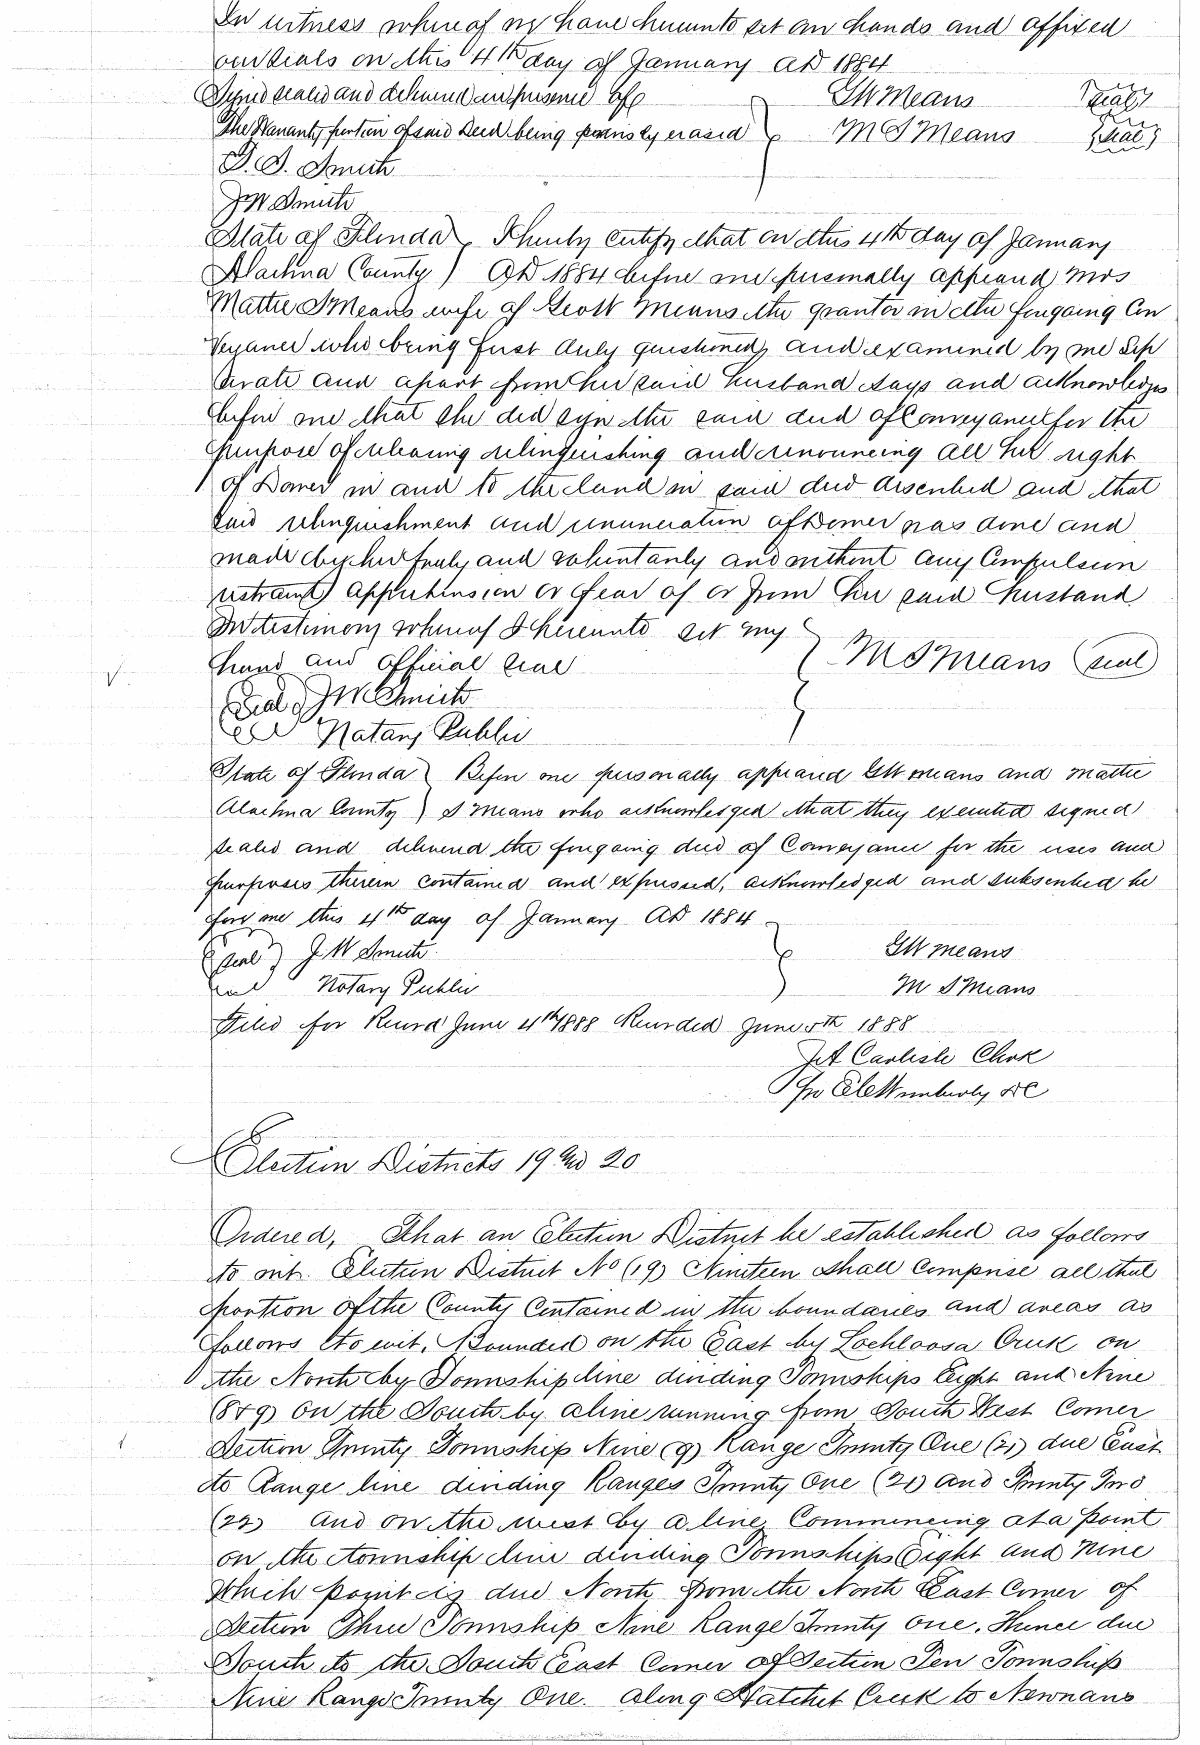 In witness whereof we have hereunto set our hands and affixed
our seals on this 4th day of January AD 1884
Signed sealed and delivered in presence of GW Means seal
The Warranty portion of said Deed being previously erased M S Means seal
D. D. Smith
JW Smith
State of Florida I hereby certify that on this 4th day of January
Alachua County AD 1884 before me personally appeared Mrs
Mattie S Means wife of Means the grantor in the forgoing Con
veyance who being first duly questioned, and examined by me Sep
arate and apart from her said husband says and acknowledges
before me that she did sign the said deed of Conveyance for the
purpose of releasing relinquishing and renouncing all her right
of Dower in and to the land in said deed described and that
said relinquishment and renunciation of Dower was done and
made by her freely and voluntarily and without any Compulsion
restraint apprehension or fear of or from her said husband
In testimony whereof I hereunto set my
hand and official seal M S Means (seal)
Seal JW Smith
Notary Public
State of Florida Before me personally appeared GW Means and Mattie
Alachua County S Means who acknowledged that they executed signed
sealed and delivered the forgoing deed of Conveyance for the uses and
purposes therein contained and expressed, acknowledged and subscribed be
fore me this 4th day of January AD 1884
seal J. W Smith GW Means
Notary Public M S Means
Filed for Record June 4th 1888 Recorded June 5th 1888
JA Carlisle Clerk
Wimberly DC
Election Districts 19 and 20
Ordered, That an Election District be established as follows
to wit. Election District No (19) Nineteen shall comprise all that
portion of the County Contained in the boundaries and areas as
follows to wit, Bounded on the East by Lochloosa Creek on
the North by Township line dividing Townships Eight and Nine
(8&9) On the South by a line running from South West Corner
Section Twenty Township Nine (9) Range Twenty One (21) due East
to Range line dividing Ranges Twenty One (21) and Twenty Two
(22) and on the west by a line Commencing at a point
on the township line dividing Townships Eight and Nine
which point is due North from the North East Corner of
Section Three Township Nine Range Twenty One. Thence due
South to the South East Corner of Section Ten Township
Nine Range Twenty One. Along Hatchet Creek to Newnans